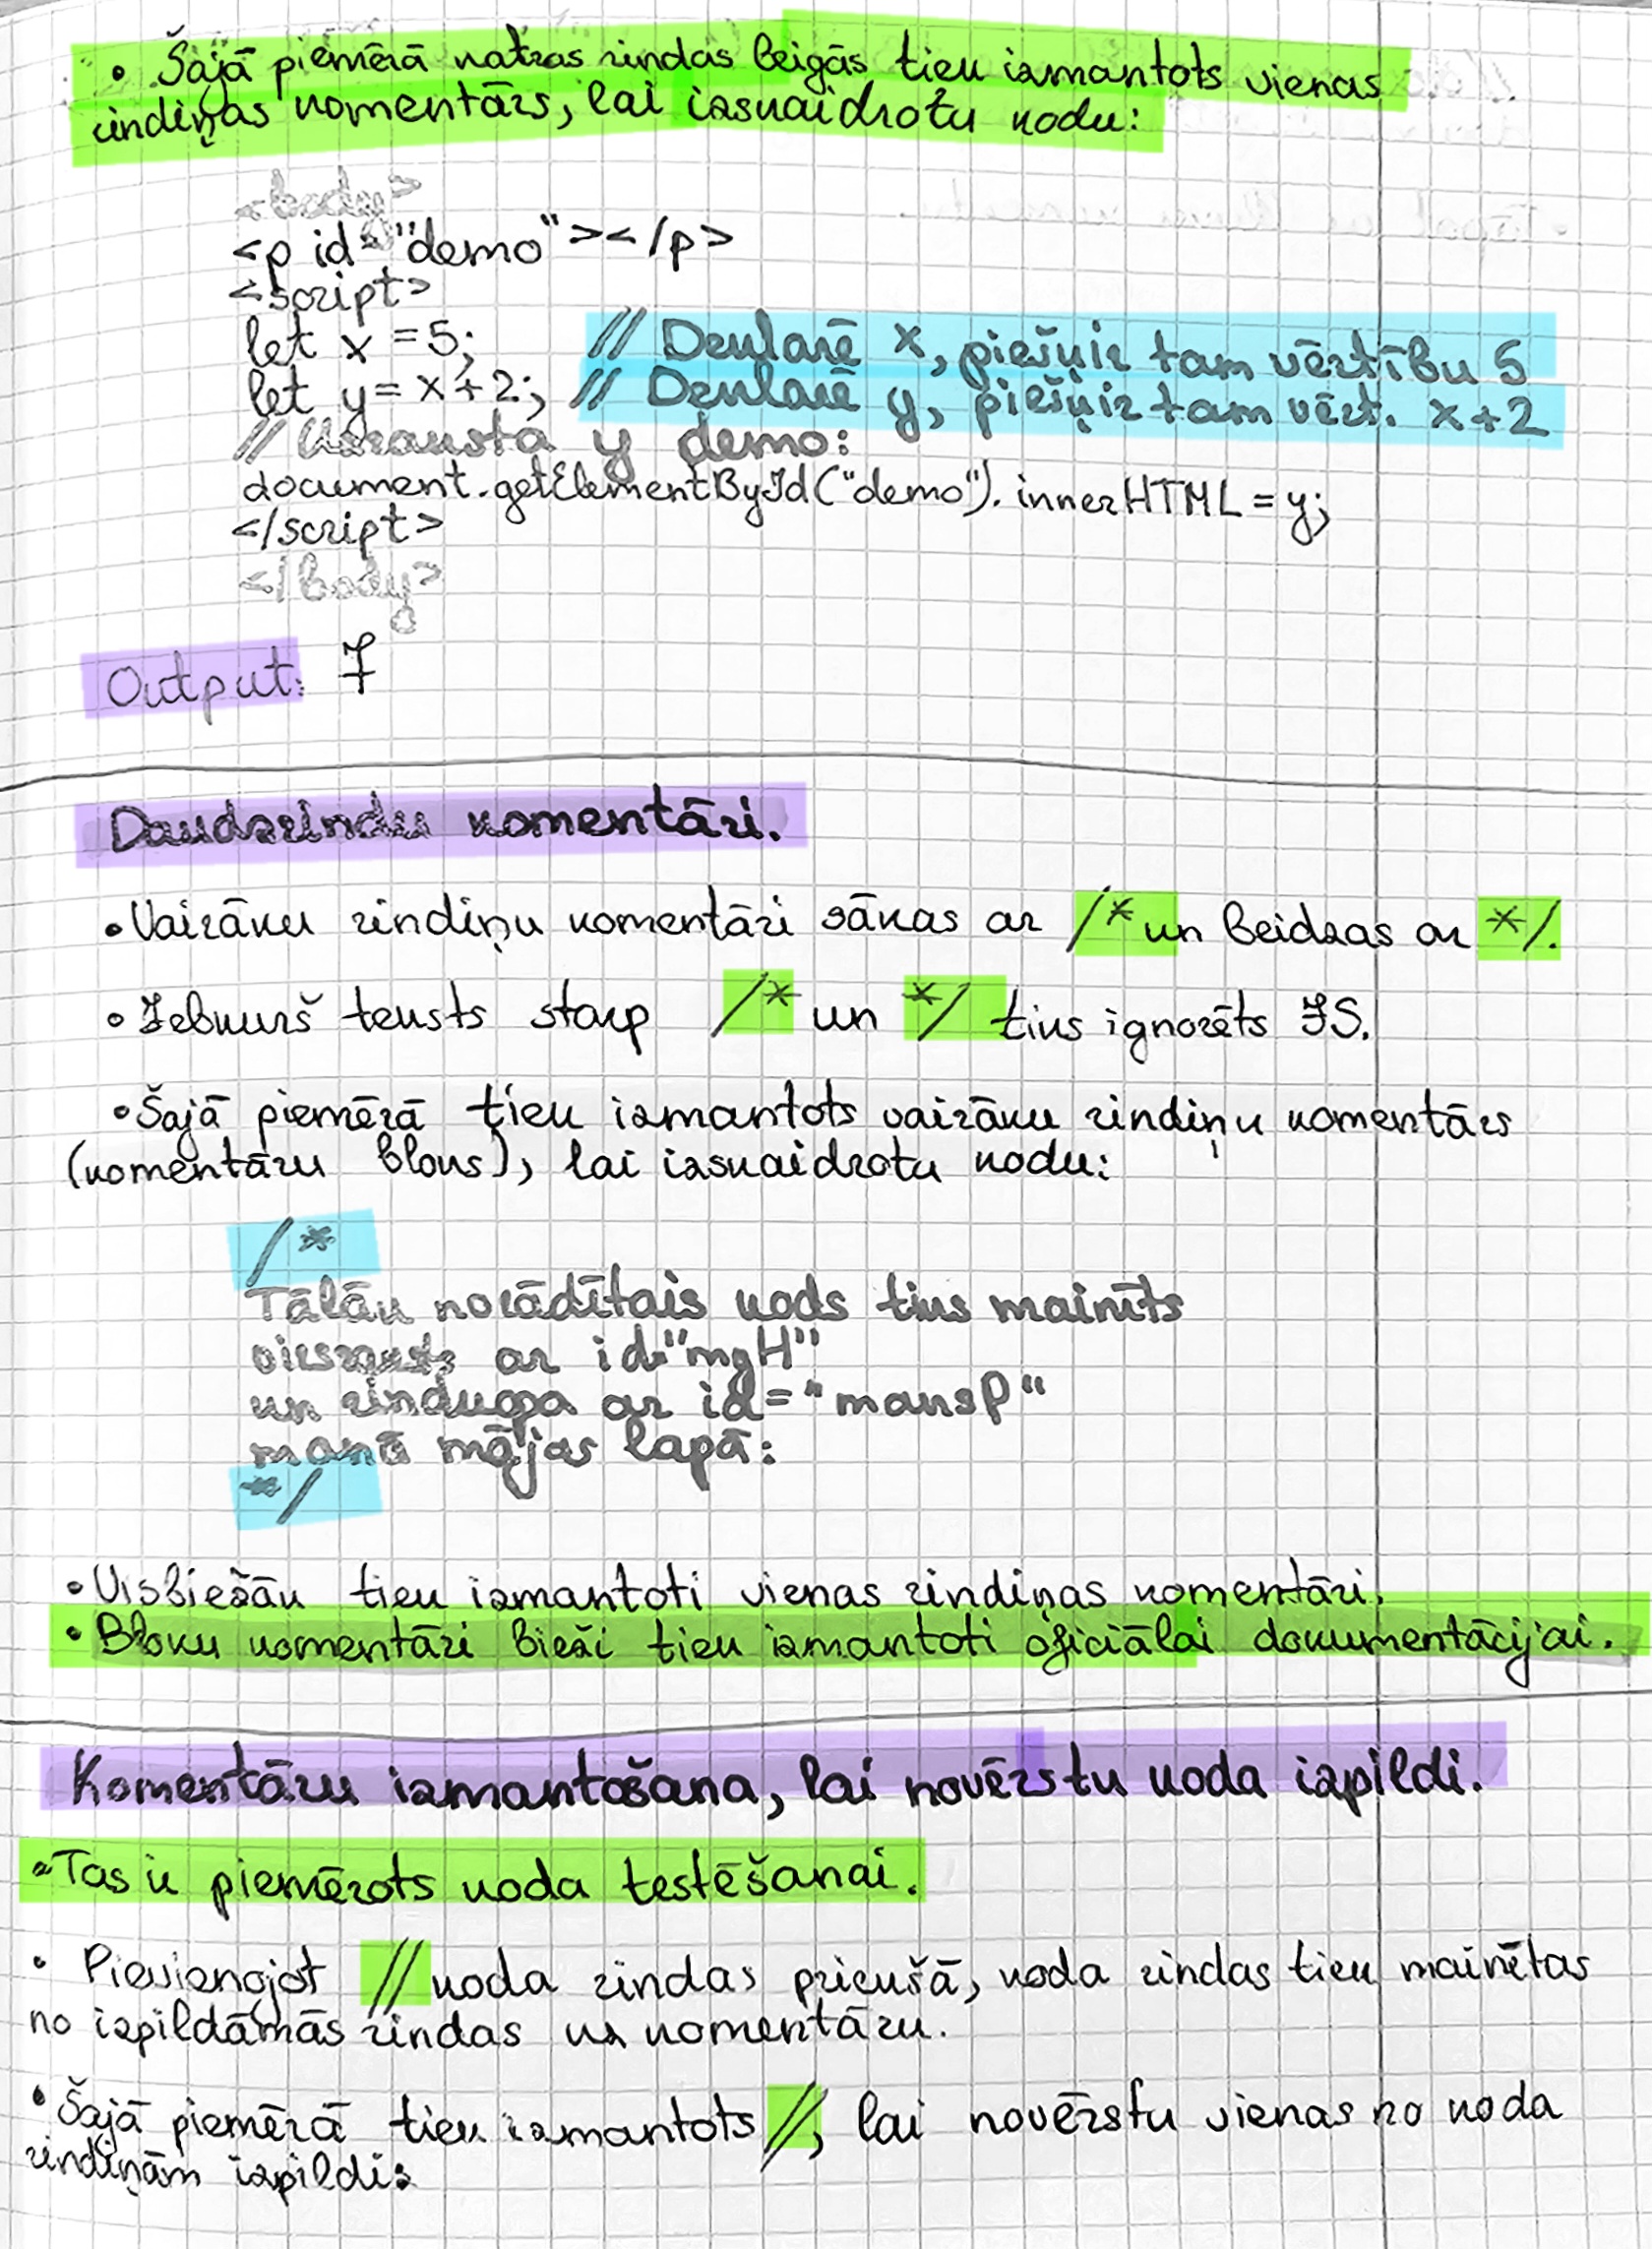 • Šajā piemērā katras rindas beigās tiek izmantots vienas
rindiņas komentārs, lai izskaidrotu kodu:
<body>
<p id="demo"></p>
<script>
let x = 5; // Deklarē x, piešķir tam vērtību 5
let y = x + 2; // Deklarē y, piešķir tam vērt. x+2
// Uzraksta y demo:
document.getElementById("demo").innerHTML = y;
</script>
</body>
Output: 7
Daudzrindu komentāri.
• Vairāku rindiņu komentāri sākas ar /* un beidzas ar */.
• Jebkurš teksts starp /* un */ tiks ignorēts JS.
• Šajā piemērā tiek izmantots vairāku rindiņu komentārs
(komentāru bloks), lai izskaidrotu kodu:
/*
Tālāk norādītais kods tiks mainīts
virsraksts ar id="myH"
un rindkopa ar id="mansP"
manā mājas lapā:
*/
• Visbiežāk tiek izmantoti vienas rindiņas komentāri.
• Bloku komentāri bieži tiek izmantoti oficiālai dokumentācijai.
Komentāru izmantošana, lai novērstu koda izpildi.
• Tas ir piemērots koda testēšanai.
• Pievienojot // koda rindas priekšā, koda rindas tiek mainītas
no izpildāmās rindas uz komentāru.
• Šajā piemērā tiek izmantots //, lai novērstu vienas no koda
rindiņām izpildi: